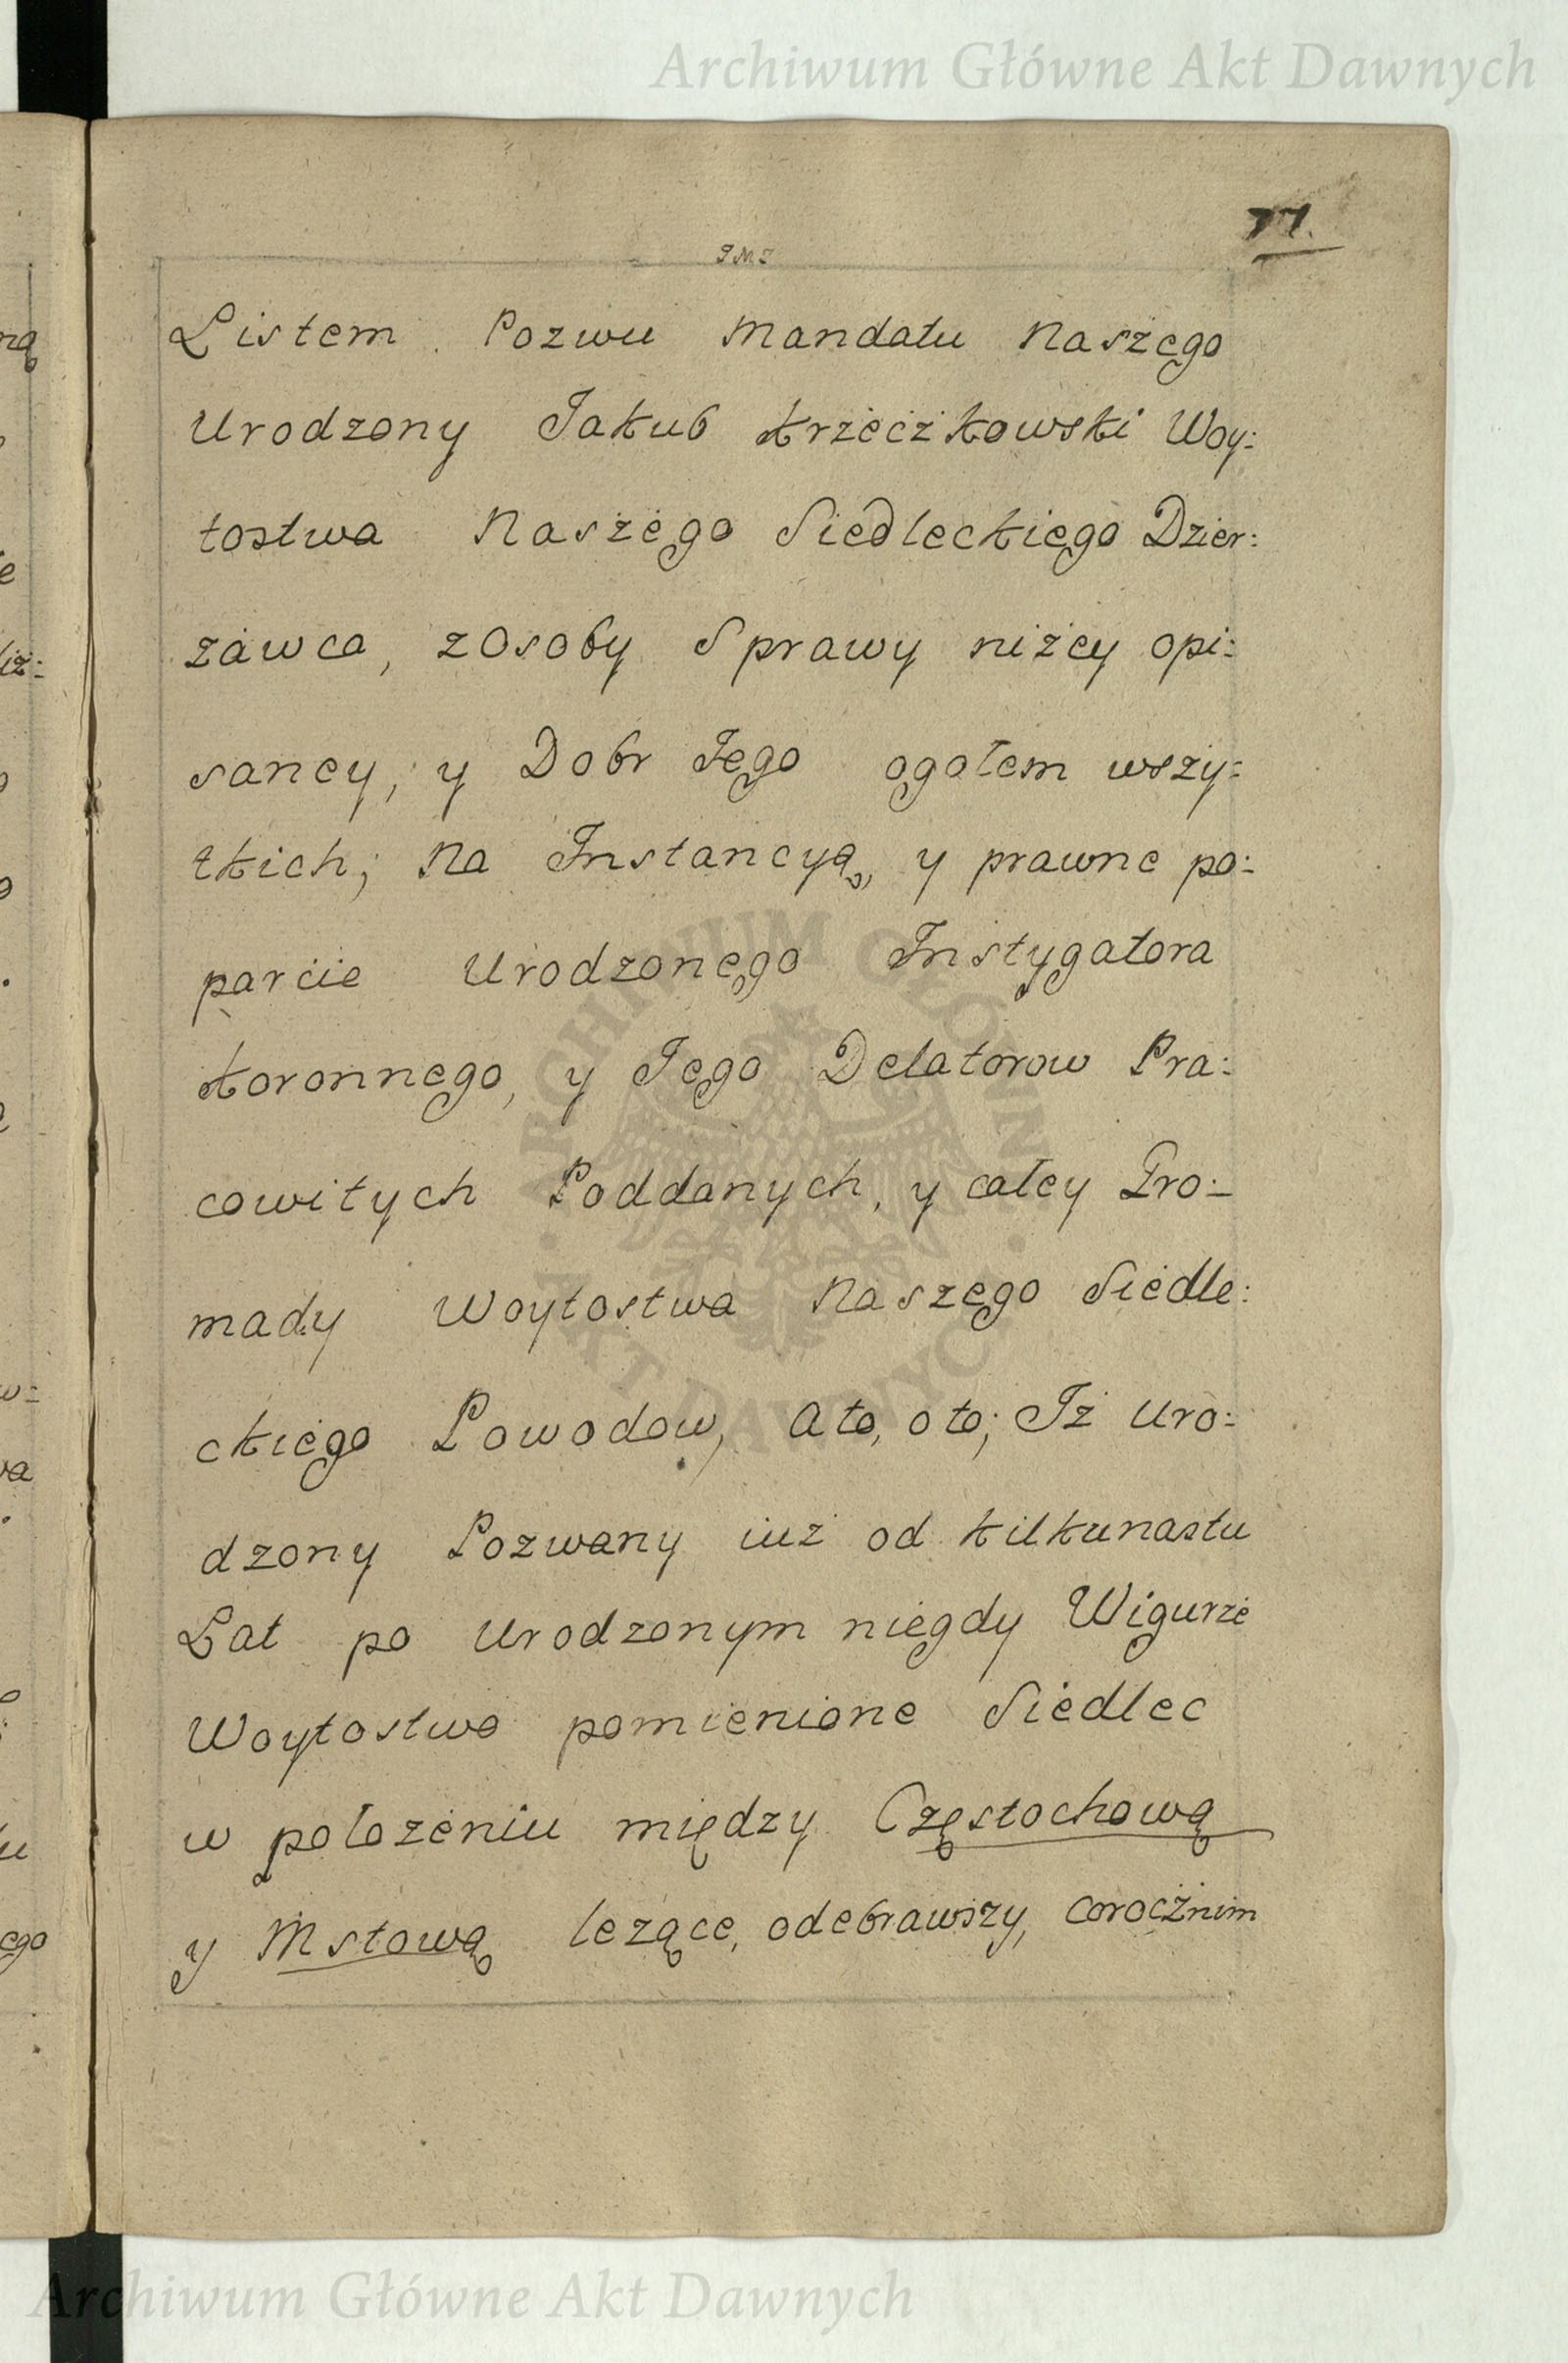 Archiwum Główne Akt Dawnych
77.
JMJ
Listem Pozwu Mandatu Naszego
Urodzony Jakub Krzeczkowski Woy:
tostwa Naszego Siedleckiego Dzier:
zawca, z Osoby Sprawy niżey opi:
saney, y Dobr Jego ogołem wszy:
tkich; Na Instancyą, y prawne po:
parcie Urodzonego Instygatora
Koronnego, y Jego Delatorow Pra:
cowitych Poddanych, y całey Gro:
mady Woytostwa Naszego Siedle:
ckiego Powodow, a to, o to; Iż Uro:
dzony Pozwany iuż od kilkunastu
Lat po Urodzonym niegdy Wigurze
Woytostwo pomienione Siedlec
w położeniu między Częstochową
y Mstową leżące, odebrawszy, corocżnim
ARCHIWUM GŁÓWNE
AKT DAWNYCH
Archiwum Główne Akt Dawnych